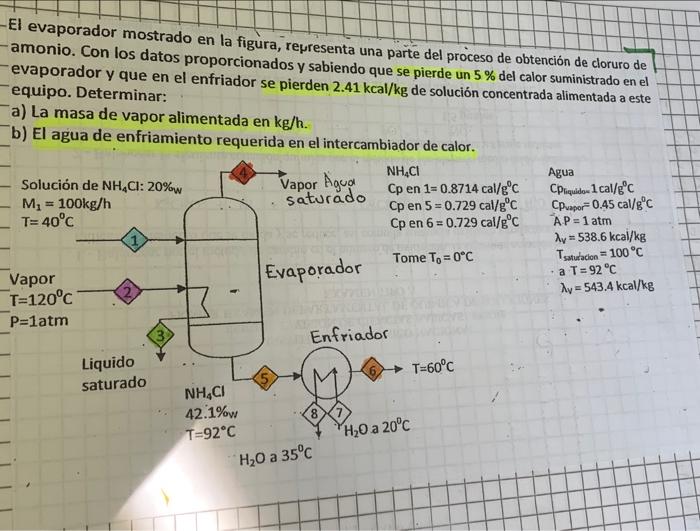 El evaporador mostrado en la figura, representa una parte del proceso de obtención de cloruro de
amonio. Con los datos proporcionados y sabiendo que se pierde un 5 % del calor suministrado en el
evaporador y que en el enfriador se pierden 2.41 kcal/kg de solución concentrada alimentada a este
equipo. Determinar:
a) La masa de vapor alimentada en kg/h.
b) El agua de enfriamiento requerida en el intercambiador de calor.
4
Solución de NH₄Cl: 20%w
M₁ = 100kg/h
T= 40°C
1
Vapor Agua
saturado
NH₄Cl
Cp en 1= 0.8714 cal/g°C
Cp en 5 = 0.729 cal/g°C
Cp en 6 = 0.729 cal/g°C
Tome T₀ = 0°C
Agua
Cpliquido= 1 cal/g°C
Cpvapor= 0.45 cal/g°C
A P = 1 atm
λv = 538.6 kcal/kg
Tsaturacion = 100 °C
a T = 92 °C
λv = 543.4 kcal/kg
Evaporador
Vapor
T=120°C
P=1atm
2
3
Liquido
saturado
Enfriador
5
6
T=60°C
NH₄Cl
42.1%w
T=92°C
8
7
H₂O a 20°C
H₂O a 35°C